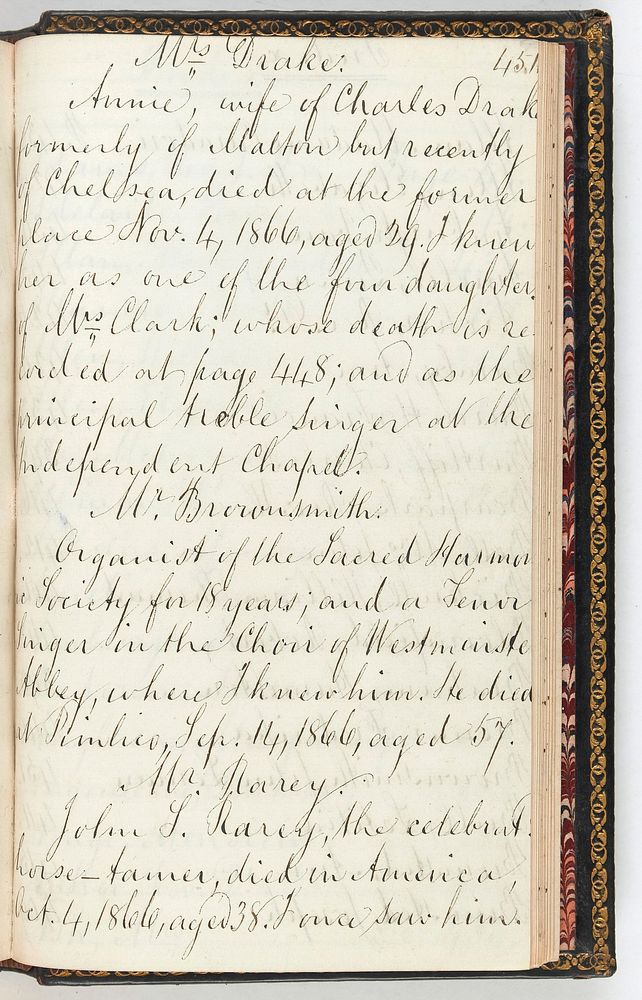 Mrs Drake. 451
Annie, wife of Charles Drak
formerly of Malton but recently
of Chelsea, died at the former
place Nov. 4, 1866, aged 29. I knew
her as one of the four daughter
of Mrs Clark; whose death is re-
corded at page 448; and as the
principal treble singer at the
Independent Chapel.
Mr. Brownsmith.
Organist of the Sacred Harmon
ic Society for 18 years; and a Tenor
singer in the Choir of Westminste
Abbey, where I knew him. He died
at Pimlico, Sep. 14, 1866, aged 57.
Mr. Rarey.
John S. Rarey, the celebrat.
horse-tamer, died in America,
Oct. 4, 1866, aged 38. I once saw him.